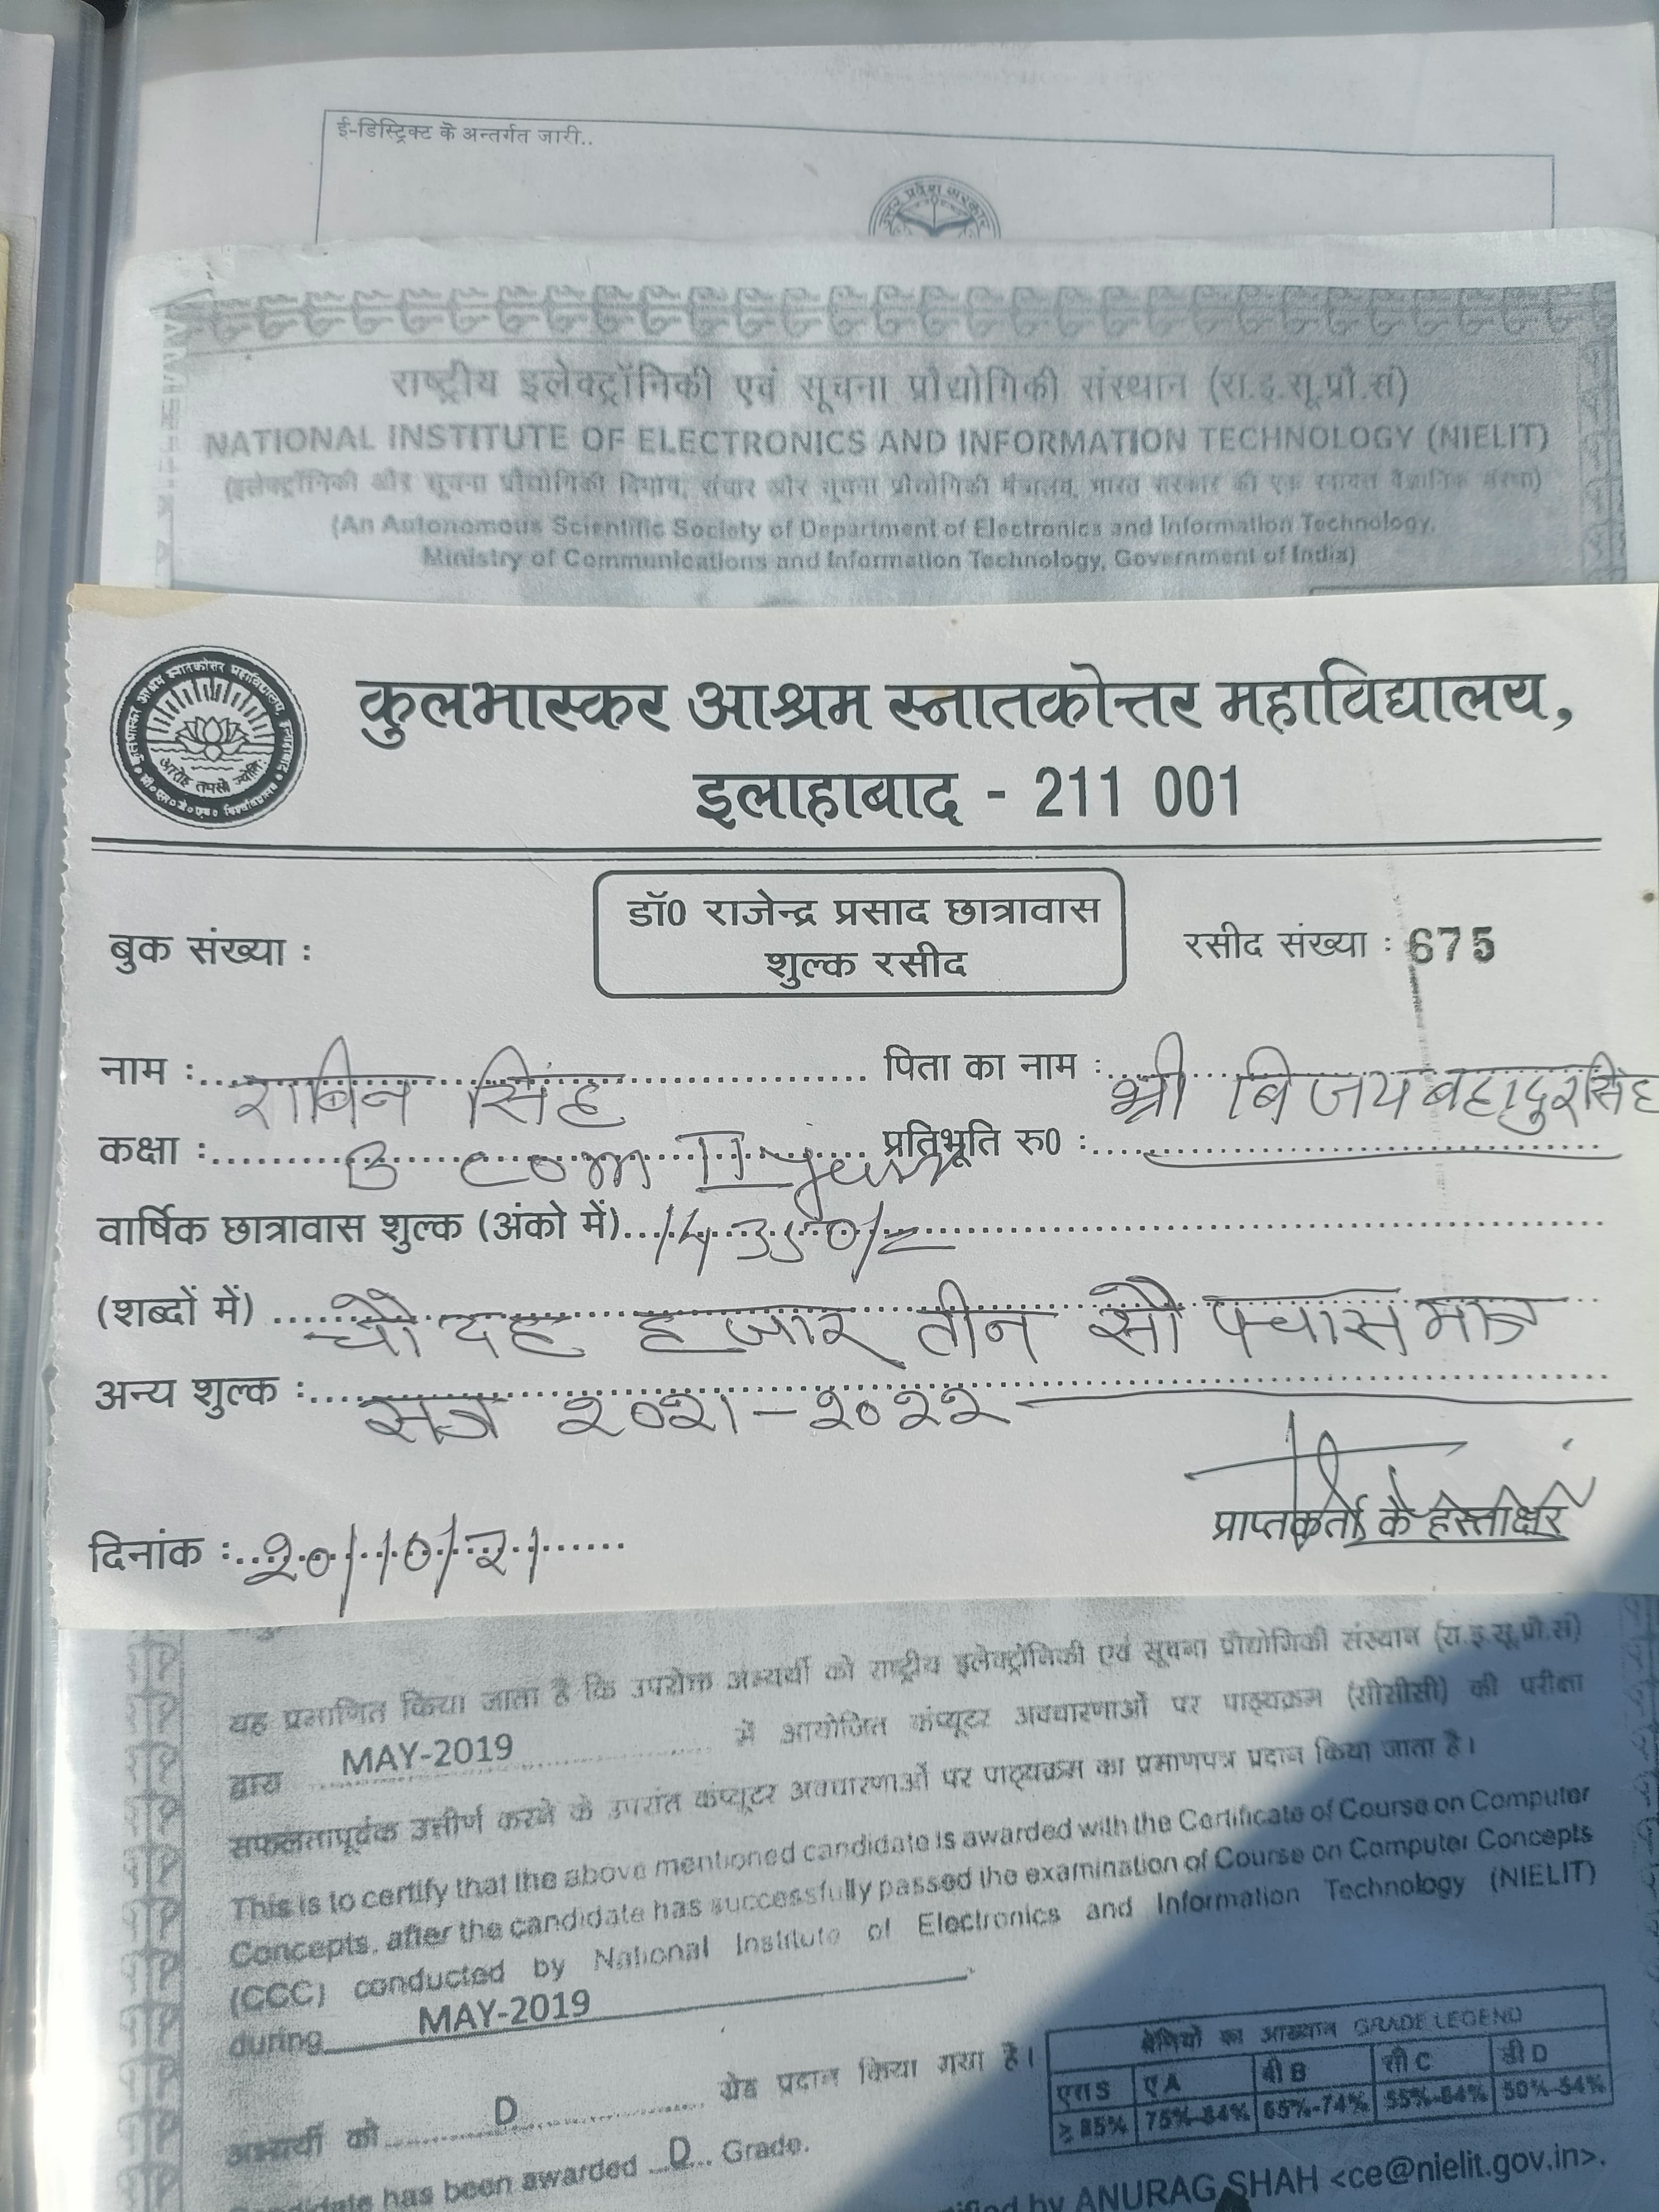 ई-डिस्ट्रिक्ट के अन्तर्गत जारी..
उत्तर प्रदेश सरकार
राष्ट्रीय इलेक्ट्रॉनिकी एवं सूचना प्रौद्योगिकी संस्थान (रा.इ.सू.प्रौ.सं)
NATIONAL INSTITUTE OF ELECTRONICS AND INFORMATION TECHNOLOGY (NIELIT)
(इलेक्ट्रॉनिकी और सूचना प्रौद्योगिकी विभाग, संचार और सूचना प्रौद्योगिकी मंत्रालय, भारत सरकार की एक स्वायत्त वैज्ञानिक संस्था)
(An Autonomous Scientific Society of Department of Electronics and Information Technology,
Ministry of Communications and Information Technology, Government of India)
कुलभास्कर आश्रम स्नातकोत्तर महाविद्यालय,
इलाहाबाद - 211 001
डॉ0 राजेन्द्र प्रसाद छात्रावास
शुल्क रसीद
बुक संख्या :
रसीद संख्या : 675
नाम : राबिन सिंह पिता का नाम : श्री विजय बहादुर सिंह
कक्षा : B com II year प्रतिभूति रु0 :
वार्षिक छात्रावास शुल्क (अंको में) 14350/=
(शब्दों में) चौदह हजार तीन सौ पचास मात्र
अन्य शुल्क : सत्र २०२१-२०२२
प्राप्तकर्ता के हस्ताक्षर
दिनांक : २०/10/21
यह प्रमाणित किया जाता है कि उपरोक्त अभ्यर्थी को राष्ट्रीय इलेक्ट्रॉनिकी एवं सूचना प्रौद्योगिकी संस्थान (रा.इ.सू.प्रौ.सं)
द्वारा MAY-2019 में आयोजित कंप्यूटर अवधारणाओं पर पाठ्यक्रम (सीसीसी) की परीक्षा
सफलतापूर्वक उत्तीर्ण करने के उपरांत कंप्यूटर अवधारणाओं पर पाठ्यक्रम का प्रमाणपत्र प्रदान किया जाता है।
This is to certify that the above mentioned candidate is awarded with the Certificate of Course on Computer
Concepts, after the candidate has successfully passed the examination of Course on Computer Concepts
(CCC) conducted by National Institute of Electronics and Information Technology (NIELIT)
during MAY-2019
अभ्यर्थी को D ग्रेड प्रदान किया गया है।
श्रेणियों का आख्यान GRADE LEGEND
एस S ए A बी B सी C डी D
≥ 85% 75%-84% 65%-74% 55%-64% 50%-54%
Candidate has been awarded D Grade.
by ANURAG SHAH <ce@nielit.gov.in>.